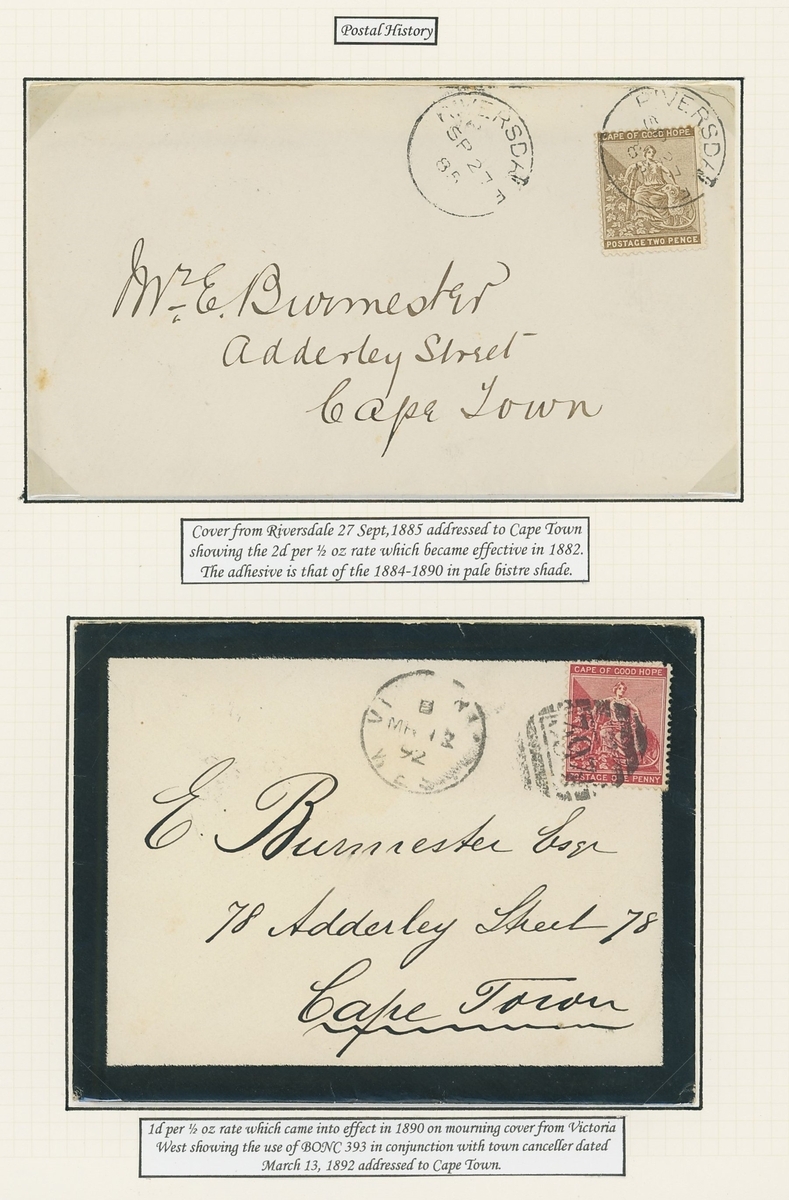 Postal History
RIVERSDA
SP 27
85
RIVERSDA
CAPE OF GOOD HOPE
POSTAGE TWO PENCE
Mr. E. Burmester
Adderley Street
Cape Town
Cover from Riversdale 27 Sept,1885 addressed to Cape Town
showing the 2d per ½ oz rate which became effective in 1882.
The adhesive is that of the 1884-1890 in pale bistre shade.
CAPE OF GOOD HOPE
POSTAGE ONE PENNY
B
MR 13
92
E. Burmester Esqr
78 Adderley Street 78
Cape Town
1d per ½ oz rate which came into effect in 1890 on mourning cover from Victoria
West showing the use of BONC 393 in conjunction with town canceller dated
March 13, 1892 addressed to Cape Town.